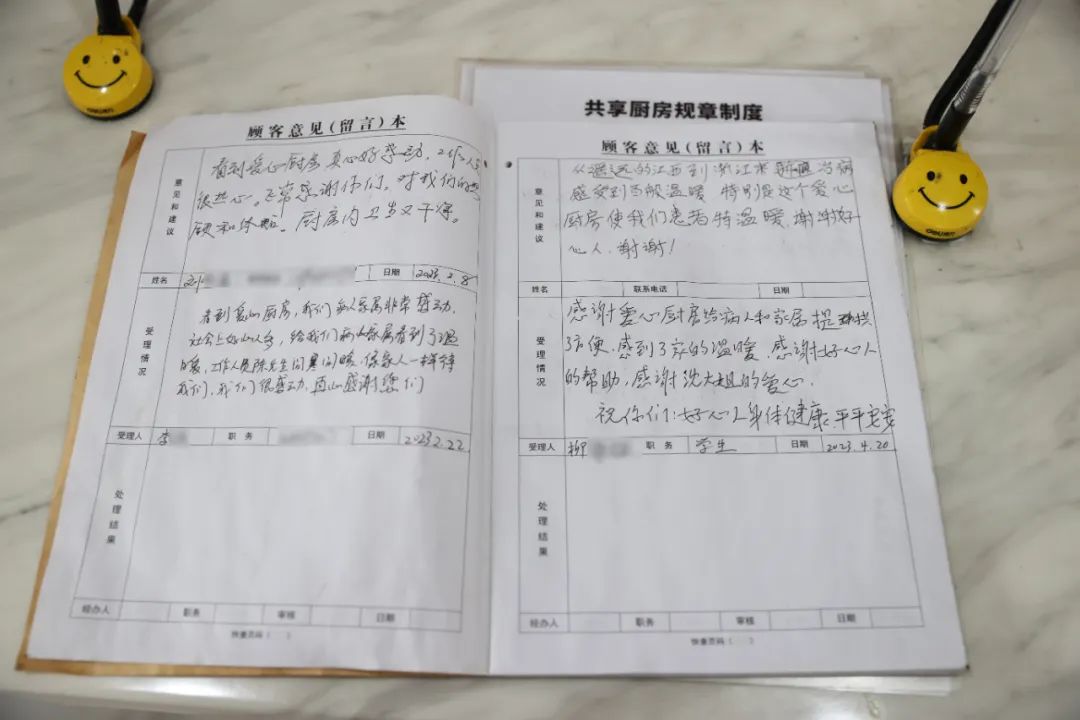 共享厨房规章制度
顾客意见(留言)本
意见和建议
看到爱心厨房真心好感动,工作人员
很热心。正常感谢你们,对我们的照
顾和体贴。厨房内卫生又干净。
姓名
日期
2023.2.8
受理情况
看到爱心厨房,我们病人家属非常感动,
社会上好心人多,给我们病人家属看到了温
暖,工作人员陈先生问寒问暖,像家人一样待
我们,我们很感动,真心感谢您们
受理人
李
职务
日期
2023.2.22
处理结果
经办人
职务
审核
日期
顾客意见(留言)本
意见和建议
从遥远的江西到浙江来 治病
感受到百般温暖 特别是这个爱心
厨房使我们患者特温暖,谢谢好
心人,谢谢!
姓名
联系电话
日期
受理情况
感谢爱心厨房给病人和家属提供
了方便,感到了家的温暖,感谢好心人
的帮助,感谢沈大姐的爱心.
祝你们:好心人身体健康,平平安安
受理人
柳
职务
学生
日期
2023.4.20
处理结果
经办人
职务
审核
日期